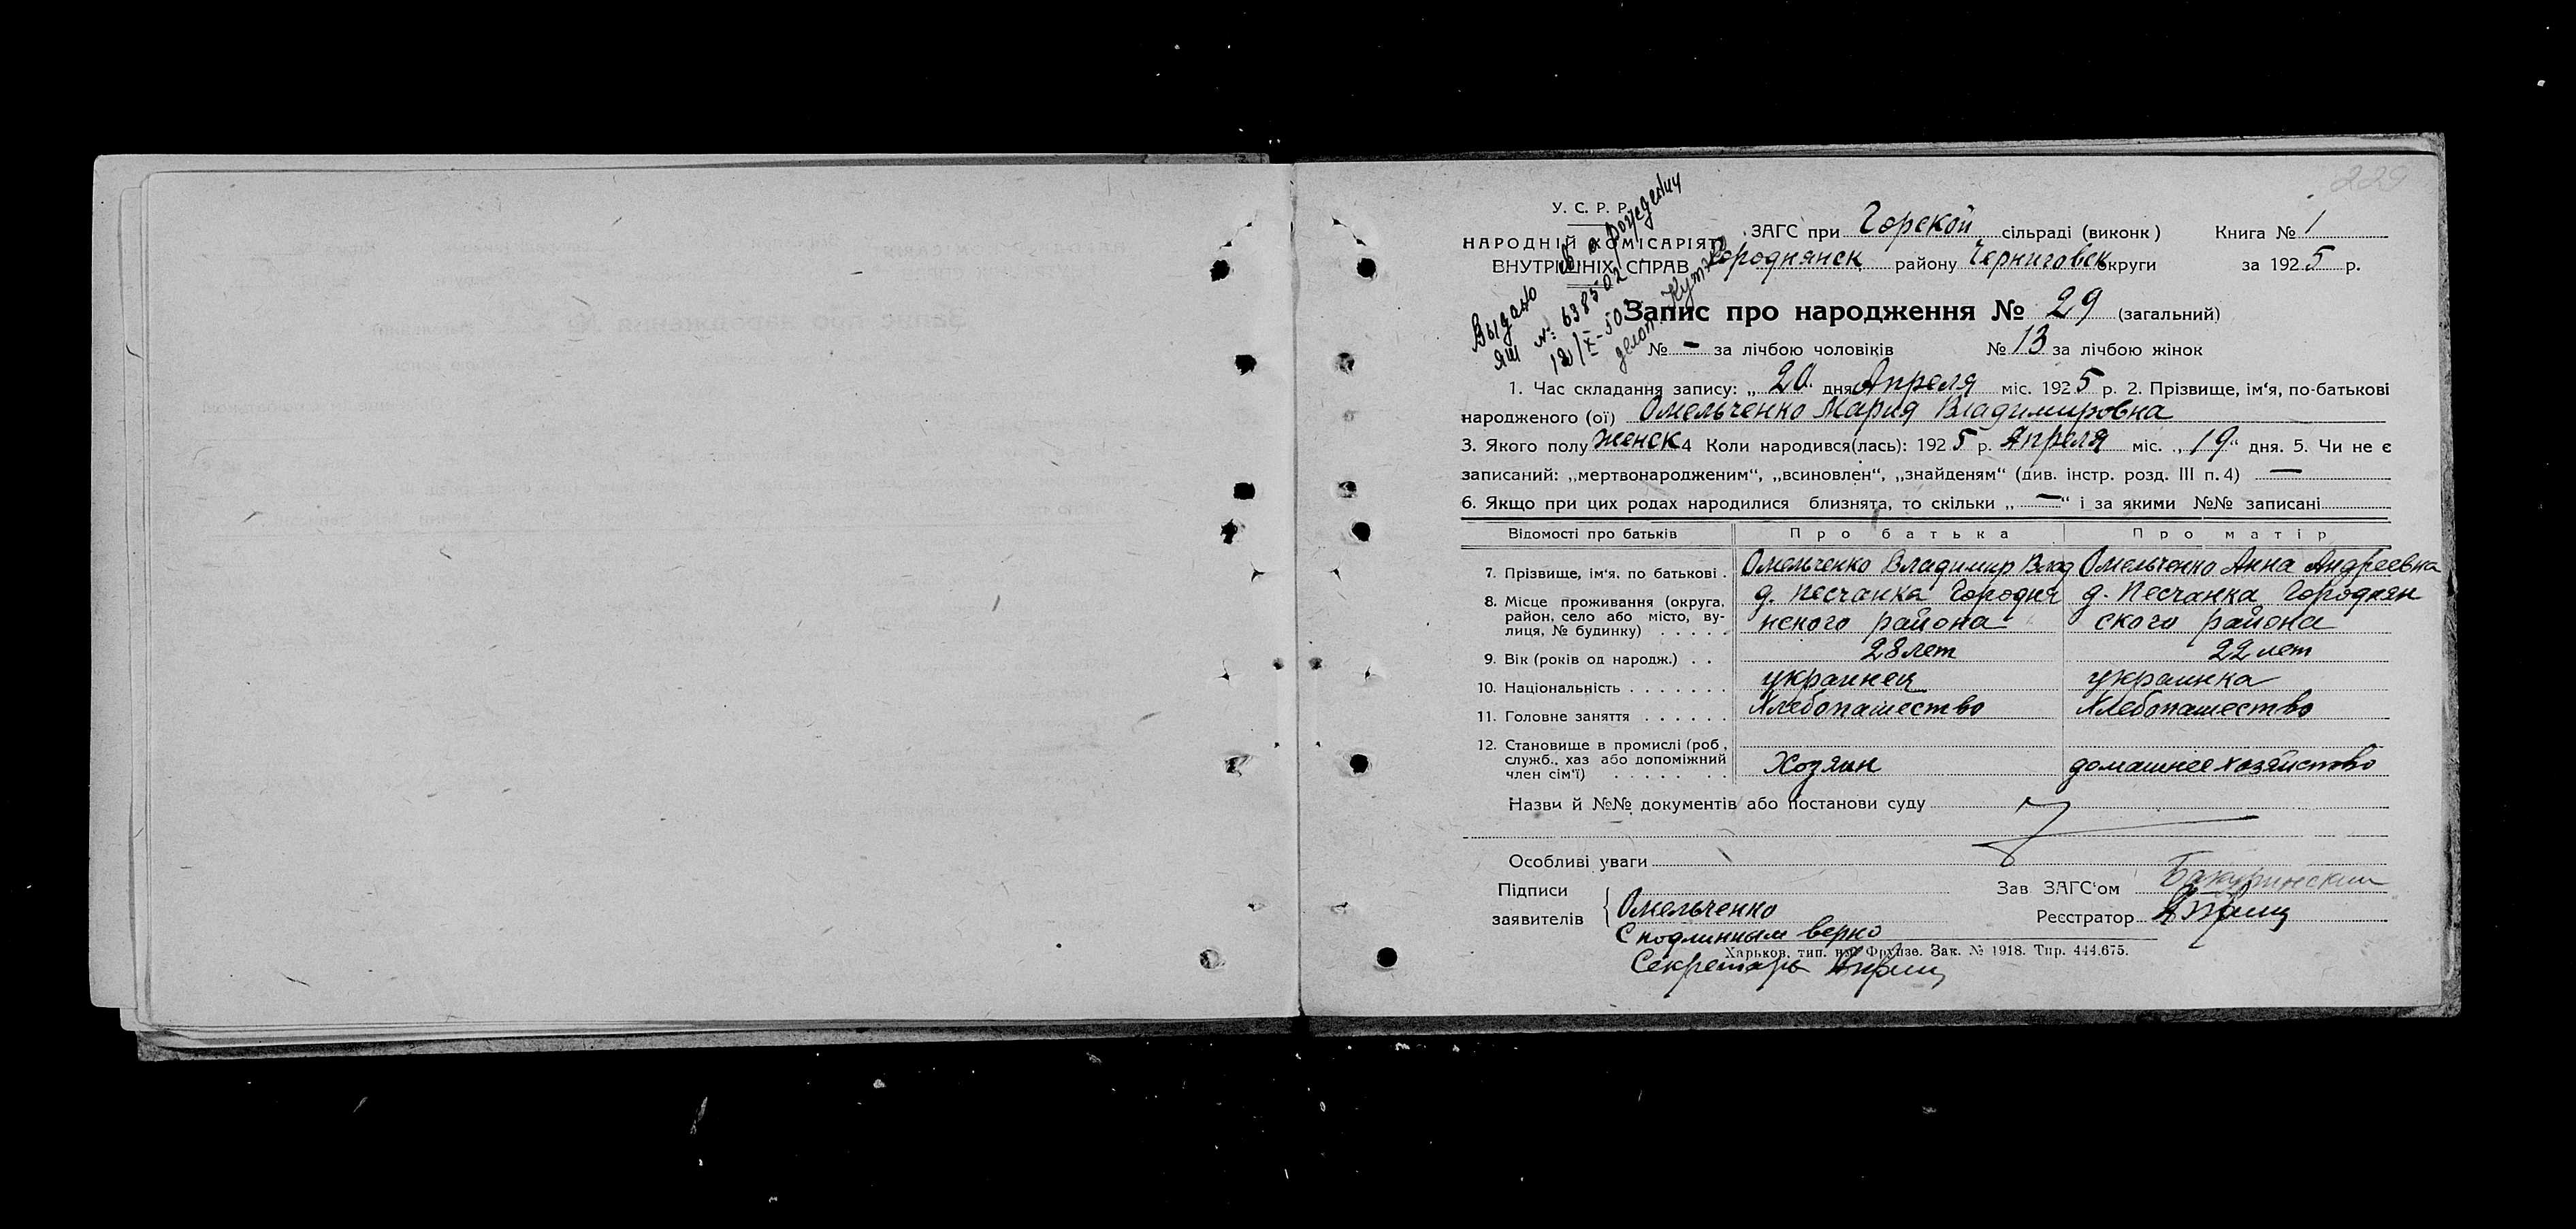 229
У. С. Р. Р.
НАРОДНІЙ КОМІСАРІЯТ
ВНУТРІШНІХ СПРАВ
Выдано св о рождении
ЯШ № 638502
12/X-50
ЗАГС при Горской сільраді (виконк) Книга № 1
Городнянск району Черниговск округи за 1925 р.
Запис про народження № 29 (загальний)
№ — за лічбою чоловіків № 13 за лічбою жінок
1. Час складання запису: „ 20 дня Апреля міс. 1925 р. 2. Прізвище, ім‘я, по-батькові
народженого (ої) Омельченко Мария Владимировна
3. Якого полу женск 4 Коли народився(лась): 1925 р. Апреля міс. „19“ дня. 5. Чи не є
записаний: „мертвонародженим“, „всиновлен“, „знайденям“ (див. інстр. розд. III п. 4) —
6. Якщо при цих родах народилися близнята, то скільки „—“ і за якими №№ записані
Відомості про батьків Про батька Про матір
7. Прізвище, ім‘я, по батькові . Омельченко Владимир Влад Омельченко Анна Андреевна
8. Місце проживання (округа, д. Песчанка Городня д. Песчанка Городнян
район, село або місто, ву-
лиця, № будинку) . . . . . нского района ского района
9. Вік (років од народж.) . . 28 лет 22 лет
10. Національність . . . . . . . украинец украинка
11. Головне заняття . . . . . . Хлебопашество Хлебопашество
12. Становище в промислі (роб,
служб., хаз або допоміжний Хозяин домашнее хозяйство
член сім‘ї) . . . . . . . .
Назви й №№ документів або постанови суду
Особливі уваги
Підписи Зав ЗАГС‘ом
заявителів Омельченко Реєстратор
С подлинным верно
Харьков, тип. им. Фрунзе. Зак. № 1918. Тир. 444.675.
Секретарь